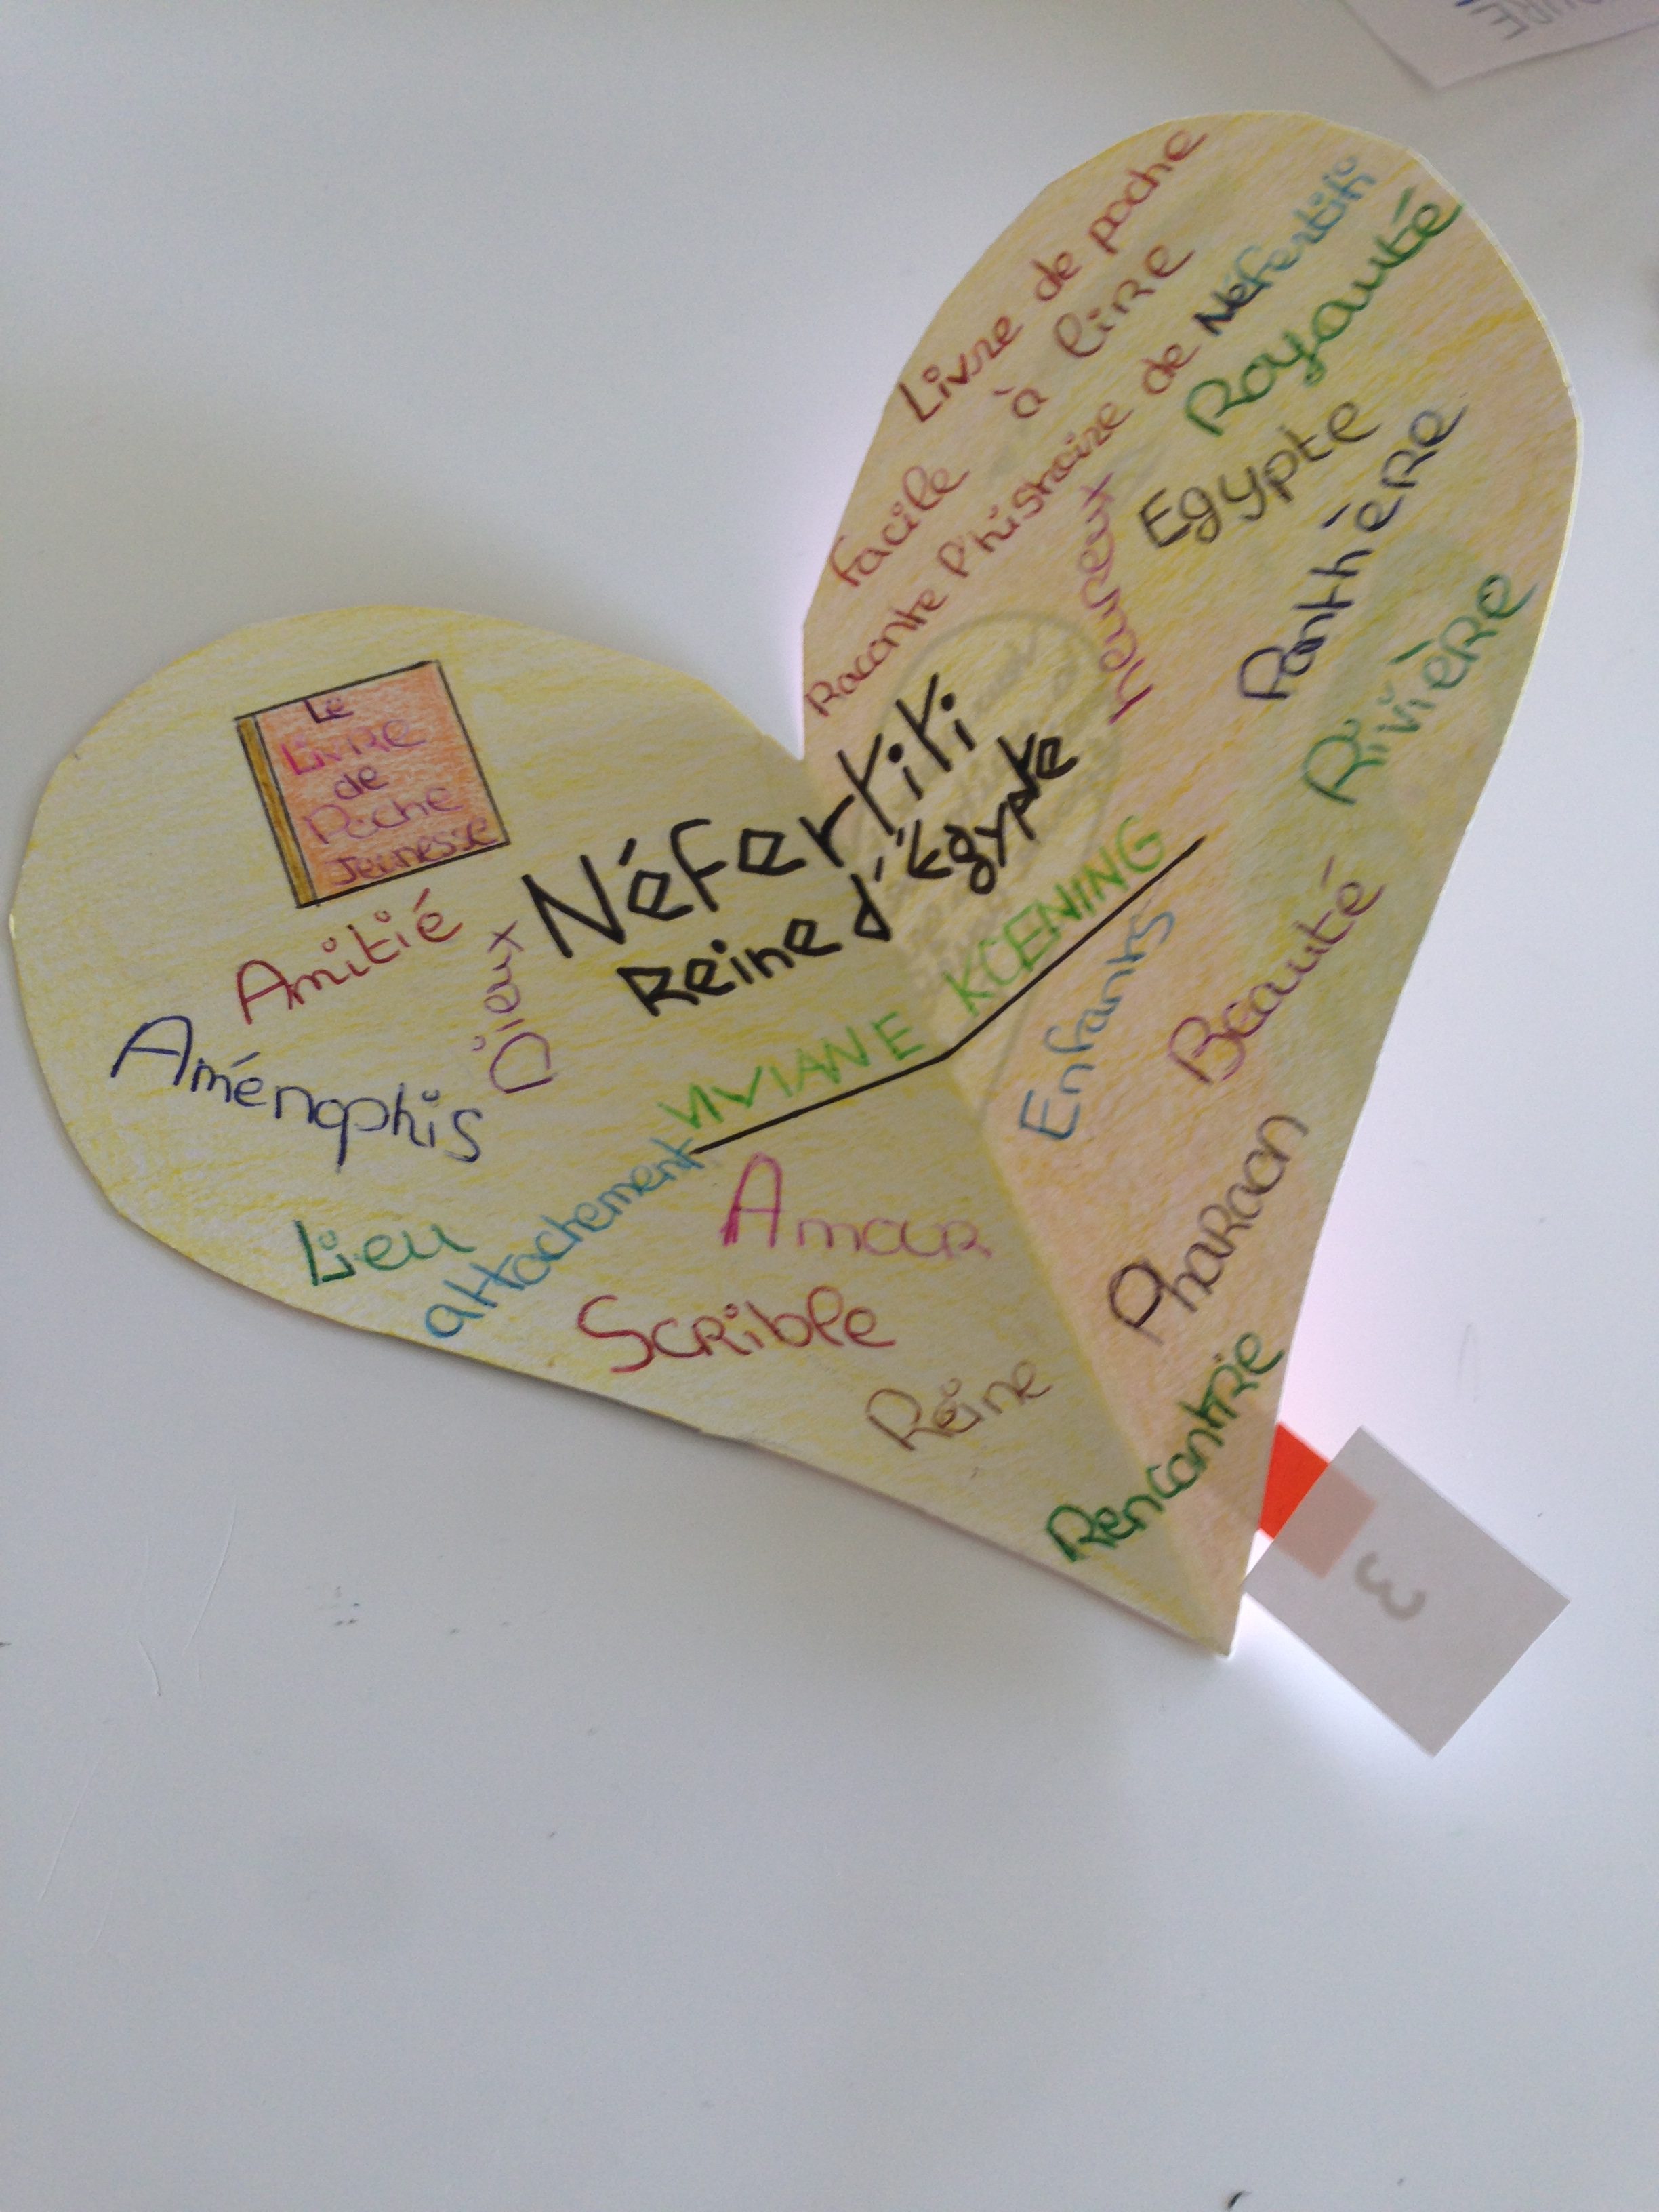 Livre de poche
facile à lire
Raconte l'histoire de Néfertiti
Royauté
heureux
Egypte
Panthère
Rivière
Le
Livre
de
Poche
Jeunesse
Néfertiti
Reine d'Égypte
VIVIANE KOENING
Amitié
Dieux
Aménophis
Enfants
Beauté
Lieu
attachement
Amour
Pharaon
Scrible
Reine
Rencontre
3